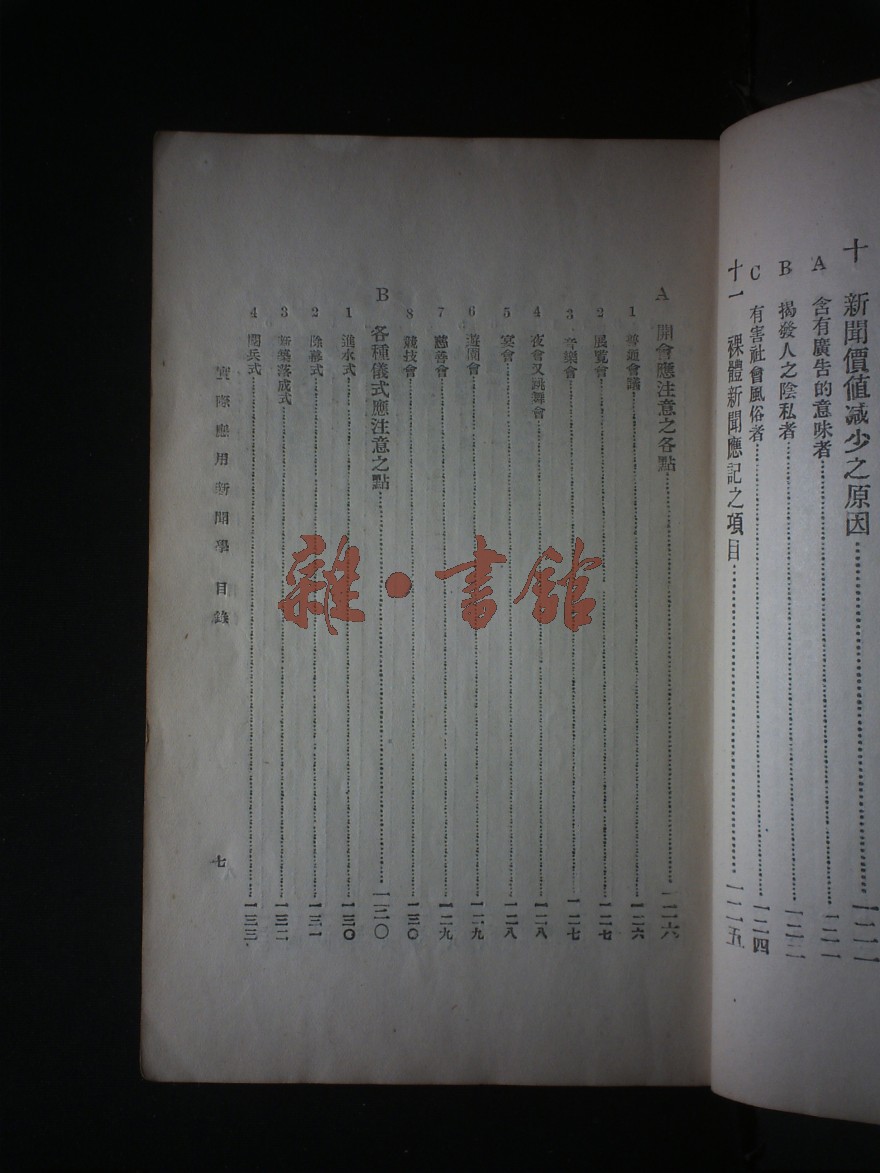 十 新聞價值減少之原因……一二一
A 含有廣告的意味者……一二一
B 揭發人之陰私者……一二二
C 有害社會風俗者……一二四
十一 裸體新聞應記之項目……一二五
A 開會應注意之各點……一二六
1 普通會議……一二六
2 展覽會……一二七
3 音樂會……一二七
4 夜會又跳舞會……一二八
5 宴會……一二八
6 遊園會……一二九
7 慈善會……一二九
8 競技會……一三〇
B 各種儀式應注意之點……一三〇
1 進水式……一三〇
2 除幕式……一三一
3 新築落成式……一三二
4 閱兵式……一三三
實際應用新聞學 目錄
七
雜·書館